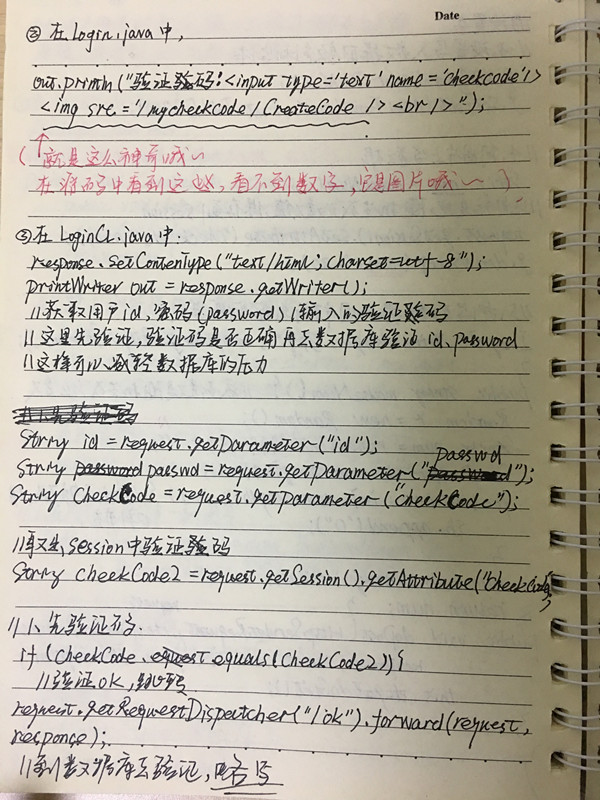 Date
② 在 Login.java 中,
out.println("验证验码:<input type='text' name='checkcode'/>
<img src='/mycheckcode/CreateCode'/><br/>");
(就是这么神奇哦~
在源码中看到这些,看不到数字,它是图片哦~)
③ 在 LoginCL.java 中.
response.setContentType("text/html; charset=utf-8");
printWriter out = response.getWriter();
//获取用户id,密码(password)(输入的验证验码
//这里先验证,验证码是否正确再去数据库验证 id, password
//这样可以减轻数据库的压力
String id = request.getParameter("id");
passwd
String passwd = request.getParameter("");
String CheckCode = request.getParameter("checkCode");
//取出Session中验证验码
String checkCode2 = request.getSession().getAttribute("checkCode
;
//1、先验证码.
if (CheckCode.equals(CheckCode2)){
//验证OK,跳转
request.getRequestDispatcher("/ok").forward(request,
response);
//到数据库去验证,略写